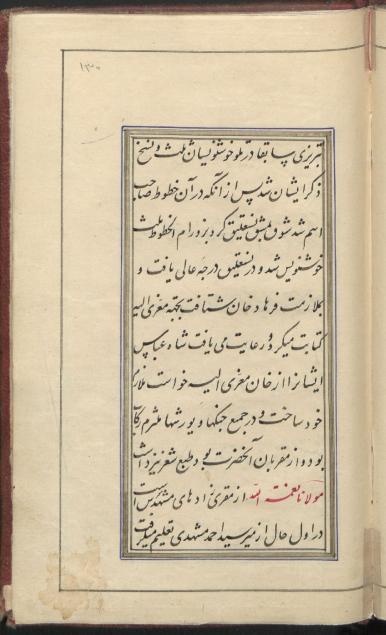 ۱۳۰
تبریزی سابقا در تلو خوشنویسان ثلث و نسخ
ذکر ایشان شد پس از آنکه در آن خطوط صاحب
اسم شد شوق بمشق نستعلیق کرده بزور ام الخطوط ثلث
خوشنویس شد و در نستعلیق درجه عالی یافت و
بملازمت فرهاد خان شتافت بجهه معزی الیه
کتابت میکرد و رعایت می یافت شاه عباس
ایشانرا از خان معزی الیه خواست ملازم
خود ساخت و در جمیع جنکها و یورشها ملتزم رکاب
بود و از مقربان آنحضرت بود طبع شعر نیز داشت
مولانا نعمت الله از مقری زادهای مشهدس است
در اول حال از میر سید احمد مشهدی تعلیم میگرفت